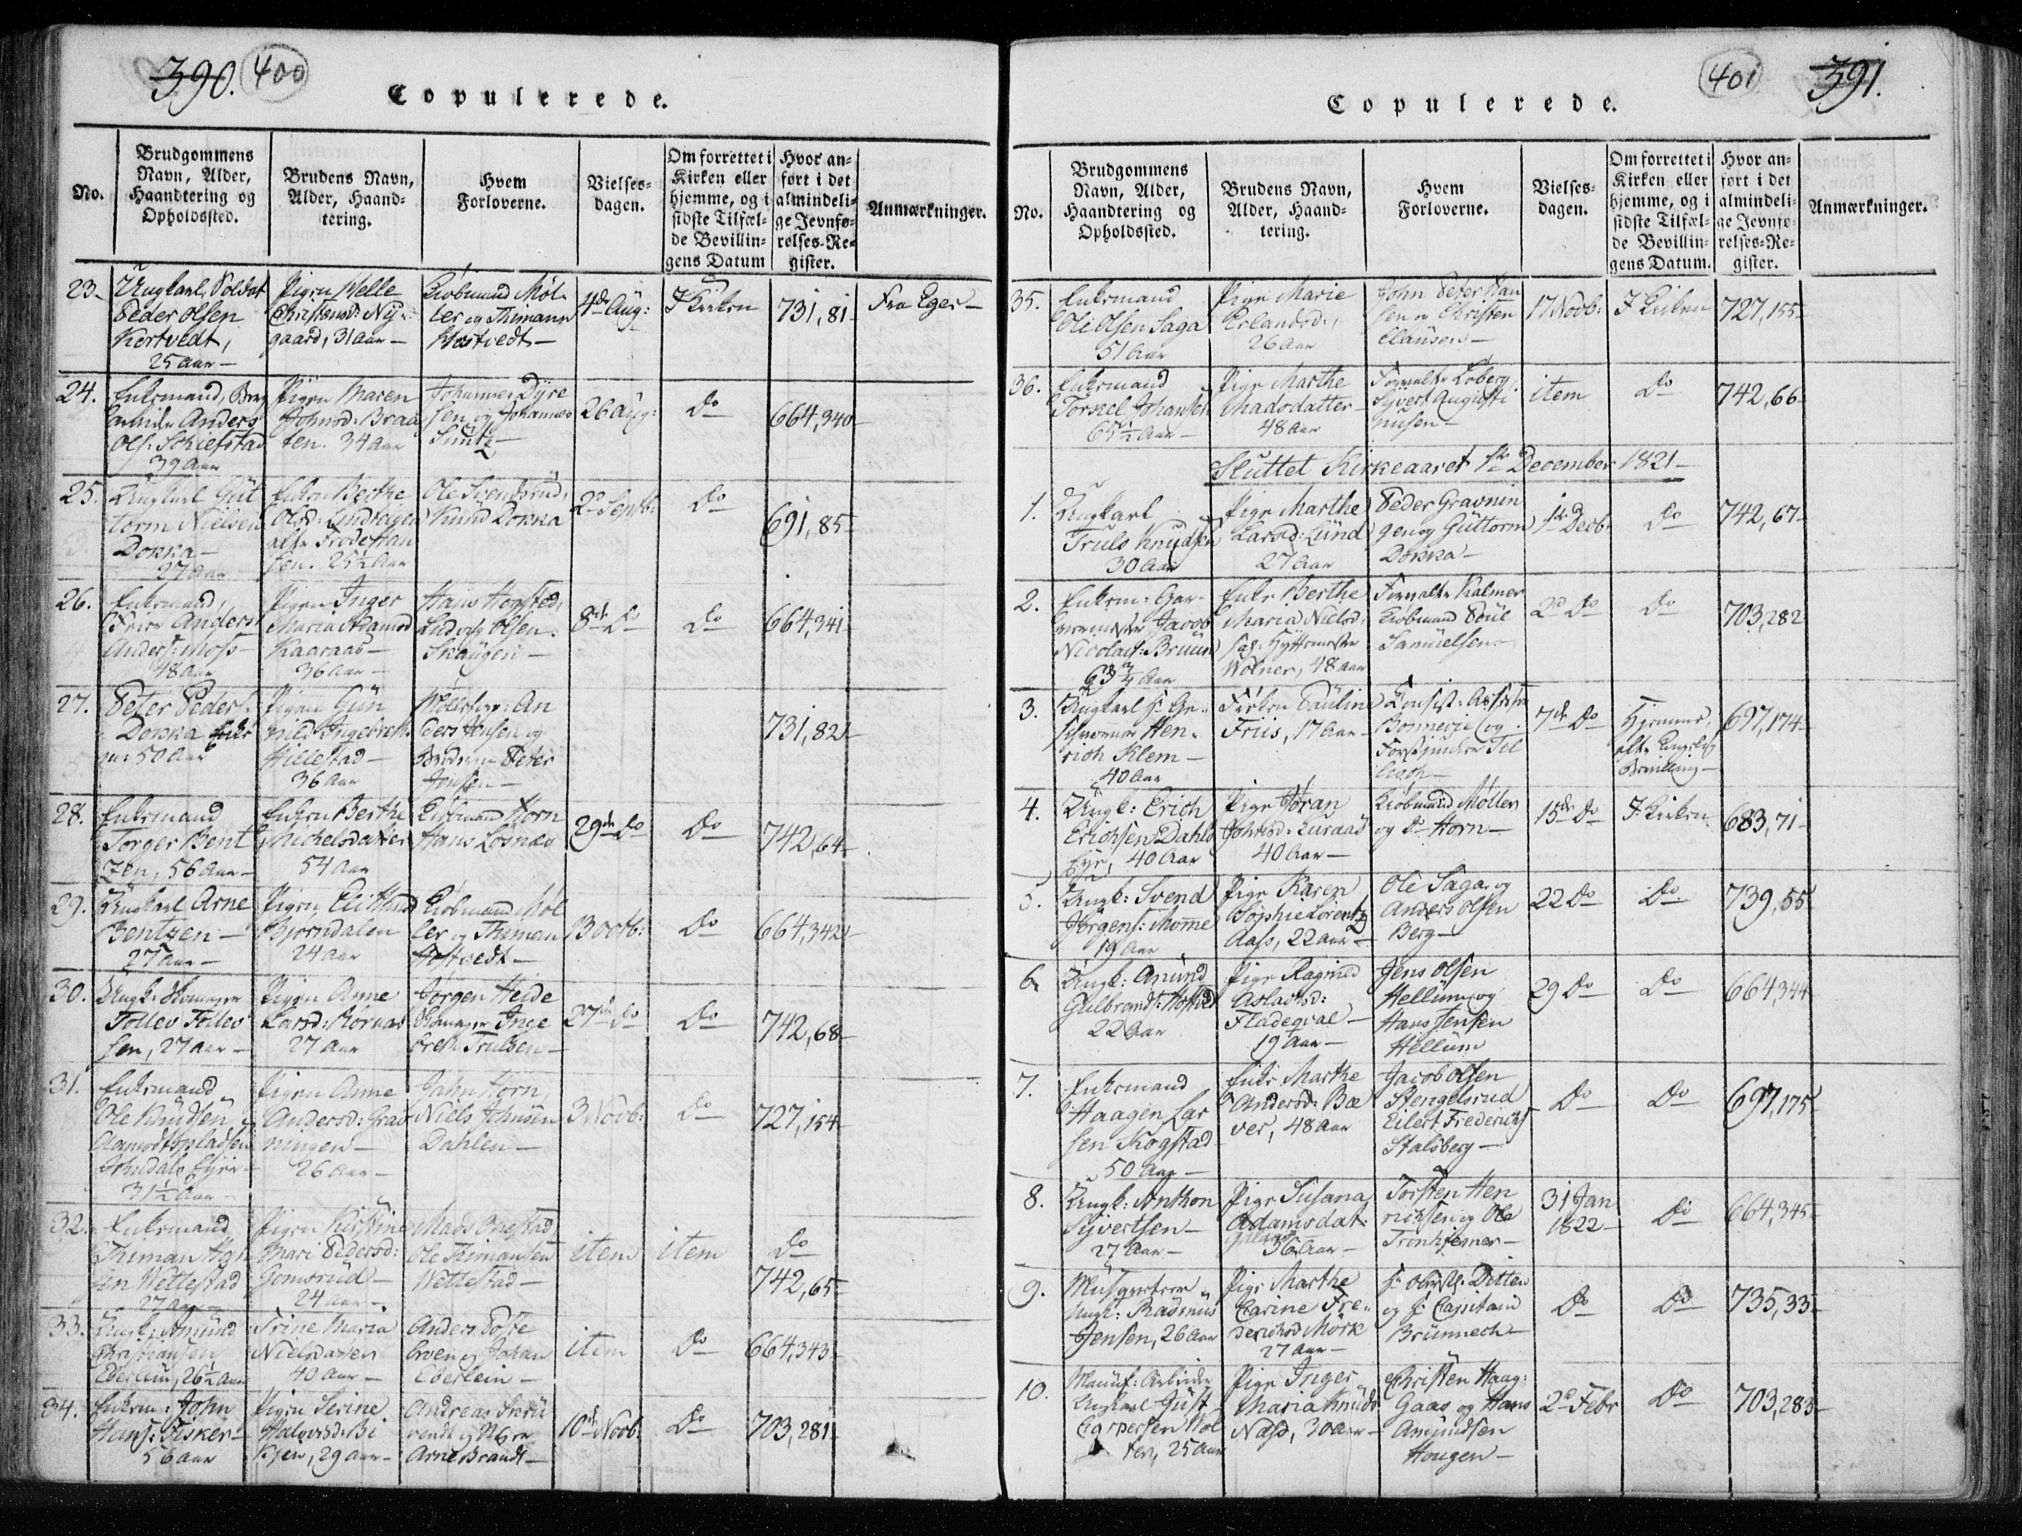 390. 400
Copulerede.
No.
Brudgommens
Navn, Alder,
Haandtering og
Opholdssted.
Brudens Navn,
Alder, Haand-
tering.
Hvem
Forloverne.
Vielses-
dagen.
Om forrettet i
Kirken eller
hjemme, og i
sidste Tilfæl-
de Bevillin-
gens Datum
Hvor an-
ført i det
almindeli-
ge Jevnfø-
relses-Re-
gister.
Anmærkninger.
23.
Ungkarl, Soldat
Peder Olsen
Kortvedt,
25 Aar
Pigen Helle
Christensd: Ny-
gaard, 31 Aar
Kiöbmand Möl-
ler og Thimann
Hostvedt
4de Aug:
I Kirken
731, 81
Fra Eger
24.
Enkemand,
Anders
Ols: Schiefstad
39 Aar
Pigen Maren
Johnsd: Braa
ten. 34 Aar
Johannes Dyre
sen og Johannes
26 Aug:
Do
664, 340
25.
Ungkarl Gut
torm Nielsen
Dokka
27 Aar
Enken Berthe
Olsd:
efter Frode Han
sen. 25½ Aar
Ole
Knud Dokka
2 Septb:
Do
691, 85
26.
Enkemand,
Anders
Anders: Moss
48 Aar
Pigen Inger
Maria Adamsd
Kaaraab
36 Aar
Hans
Ludvig Olsen
Skaugen
8de Do
Do
664, 341
27.
Peter Peder
Dokka Enke
m: 50 Aar
Pigen Gun
nild Ingebrethsd
Hillestad
36 Aar
An
ders Jensen og
Peter
Jensen
731, 82
28.
Enkemand
Torger Bent
zen, 56 Aar
Enken Berthe
Michelsdatter
54 Aar
Kiöbmand Horn
Hans Losnæs
29de Do
Do
742, 64
29.
Ungkarl Arne
Bentzen
27 Aar
Pigen Eli Knud
Bjorndalen
24 Aar
Kiöbmand Möl
ler og Thiman
Hostvedt
13 Octb:
Do
664, 342
30.
Ungk: Skomager
Tollev Tollev
sen, 27 Aar
Pigen Anne
Larsd: Kornas
27 Aar
Jörgen Heide
Skomager Inge
breth Trulsen
27de Do
Do
742, 68
31.
Enkemand
Ole Knudsen
Aamodtspladsen
31½ Aar
Pigen Anne
Andersd: Grav
ningen
26 Aar
Jahn Horn,
Niels Johnsen
Dahlen
3 Novb:
Do
727, 154
32.
Enkemand
Thiman
sen Wettestad
27 Aar
Pigen Kirstine
Mari Pedersd:
Gomsrud
24 Aar
Mads
Ole Thimansen
Wettestad
item
item
Do
742, 65
33.
Ungk: Amund
Christiansen
Eberlein, 26½ Aar
Trine Maria
Nielsdatter
40 Aar
Anders
og Johan
Eberlein
item
Do
664, 343
34.
Enkem: John
Hans: Fisker
56 Aar
Pigen Serine
Halvorsd: Bi
kjen, 29 Aar
Andreas Skru
vendt og
Arne Brandt
10de Novb:
Do
703, 281
401 391.
Copulerede.
No.
Brudgommens
Navn, Alder,
Haandtering og
Opholdssted.
Brudens Navn,
Alder, Haand-
tering.
Hvem
Forloverne.
Vielses-
dagen.
Om forrettet i
Kirken eller
hjemme, og i
sidste Tilfæl-
de Bevillin-
gens Datum.
Hvor an-
ført i det
almindeli-
ge Jevnfø-
relses-Re-
gister.
Anmærkninger.
35.
Enkemand
Ole Olsen Saga
51 Aar
Pige Marie
Erlandsd:,
26 Aar
John Peter Han
sen og Christen
Clausen
17 Novb:
I Kirken
727, 155
36.
Enkemand
Torkel Johansen
65½ Aar
Pige Marthe
Madsdatter
48 Aar
Forvalter Loberg
Syvert Augusti
nusen
item
Do
742, 66
Sluttet Kirkeaaret 1ste December 1821
1.
Ungkarl
Truls Knudsen
30 Aar
Pige Marthe
Larsd: Lund
27 Aar
Peder Gravnin
gen og Guttorm
Dokka
1ste Decb:
Do
742, 67
2.
Enkem: Gar-
vermester Jacob
Nicolais: Bruun
63¾ Aar
Enke Berthe
Maria Nielsd:
sal: Hyttemester
Wolner, 48 Aar
Forvalter Kalmer
Kiöbmand Poul
Samuelsen
2d Do
Do
703, 282
3.
Ungkarl
Hen-
rich Klem
40 Aar
Fröken Paulin
Friis, 17 Aar
Consist: Assessor
Bonnevie og
Forstjunker Til
lisch
7de Do
Hjemme,
efter Kongelig
Bevilling
697, 174
4.
Ungk: Erich
Erichsen Dahls
Eye, 40 Aar
Pige Jöran
Johnsd: Kuraas
40 Aar
Kiöbmand Möller
og do Horn
15de Do
I Kirken
683, 71
5.
Ungk: Svend
Jörgens: Momme
19 Aar
Pige Karen
Sophie Lorentz
Aass, 22 Aar
Ole Saga og
Anders Olsen
Berg
22 Do
Do
739, 55
6.
Ungk: Amund
Gulbrands:
22 Aar
Pige Ragnild
Aslaksd:
Fladeqval
19 Aar
Jens Olsen
Hellum og
Hans Jensen
Hellum
29 Do
Do
664, 344
7.
Enkemand
Haagen Lar
sen Kogstad
50 Aar
Enke Marthe
Andersd: Bæ
ver, 48 Aar
Jacob Olsen
Stengelsrud
Eilert Frederichs
Stalsberg
Do
Do
697, 175
8.
Ungk: Anthon
Syvertsen
27 Aar
Pige Susana
Adamsdat:
36 Aar
Torsten Hen
richsen og Ole
Tronhjemer
31 Jan
1822
Do
664, 345
9.
Musqueteer
Ungk: Rasmus
Jensen, 26 Aar
Pige Marthe
Carine Fre-
derichsd Mörk
27 Aar
Hr Oberstl: Ditten
og Hr Capitaine
Brünnech
Do
Do
735, 33
10.
Manuf: Arbeider
Ungkarl Just
Caspersen Wol
ver, 25 Aar
Pige Inger
Maria Knuds
Næss, 30 Aar
Christen Haag:
Gaas og Hans
Amundsen
Hougen
2d Febr
Do
703, 283